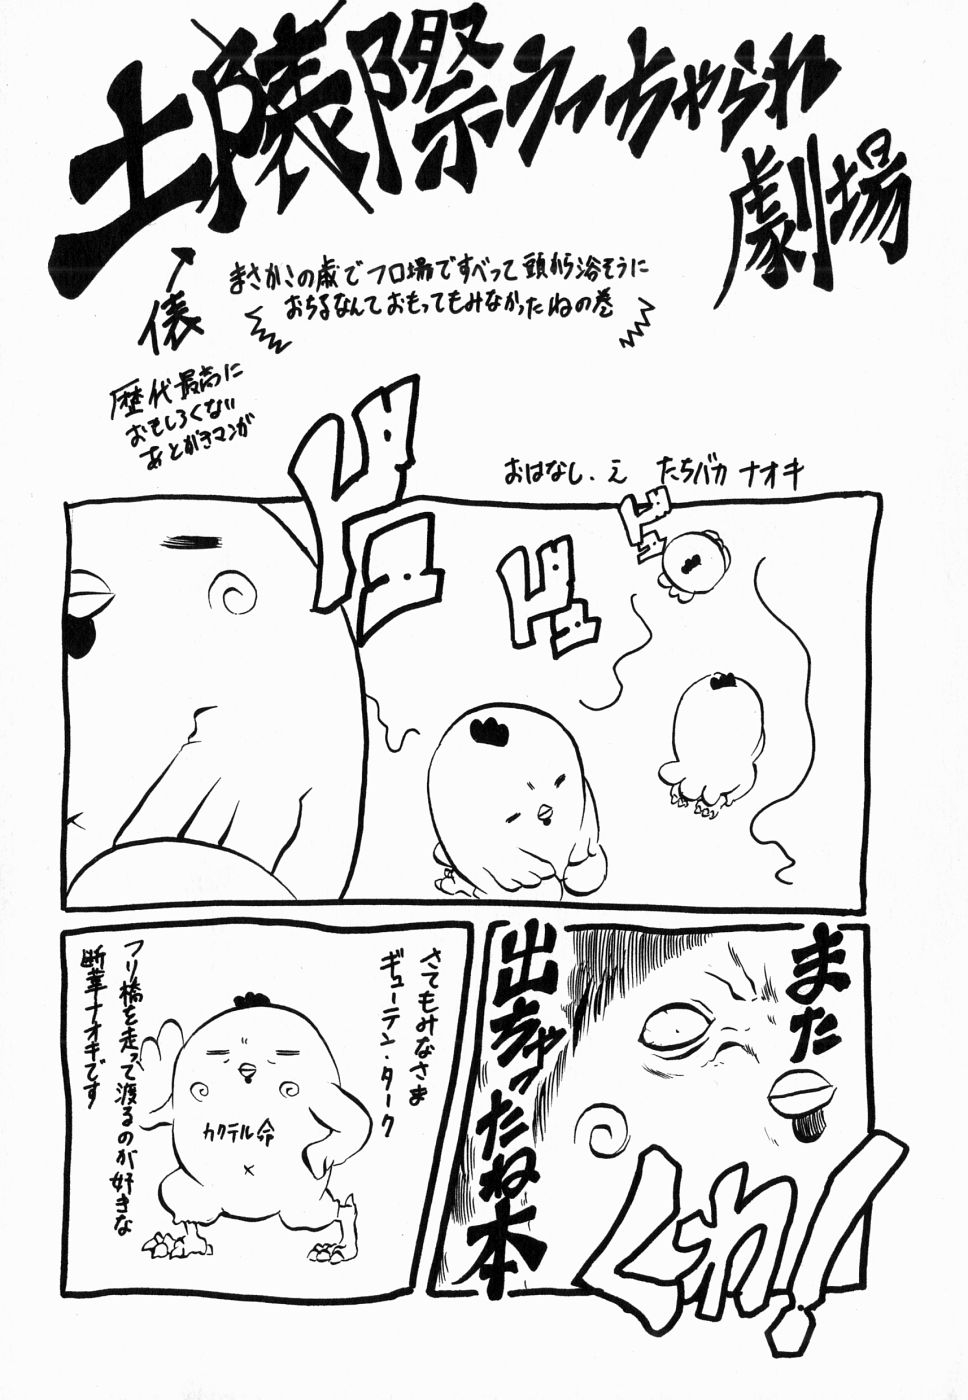 土俵際うっちゃられ
劇場
俵
まさかこの歳でフロ場ですべって頭から浴そうに
おちるなんておもってもみなかったねの巻
歴代最高に
おもしろくない
あとがきマンガ
おはなし.え たちバカ ナオキ
ドドュ
ドドュ
まった
出ちゃったね本
くわっ!
さてもみなさま
ギューテン・ターク
カクテル命
フリ橋を走って渡るのが好きな
断華ナオキです